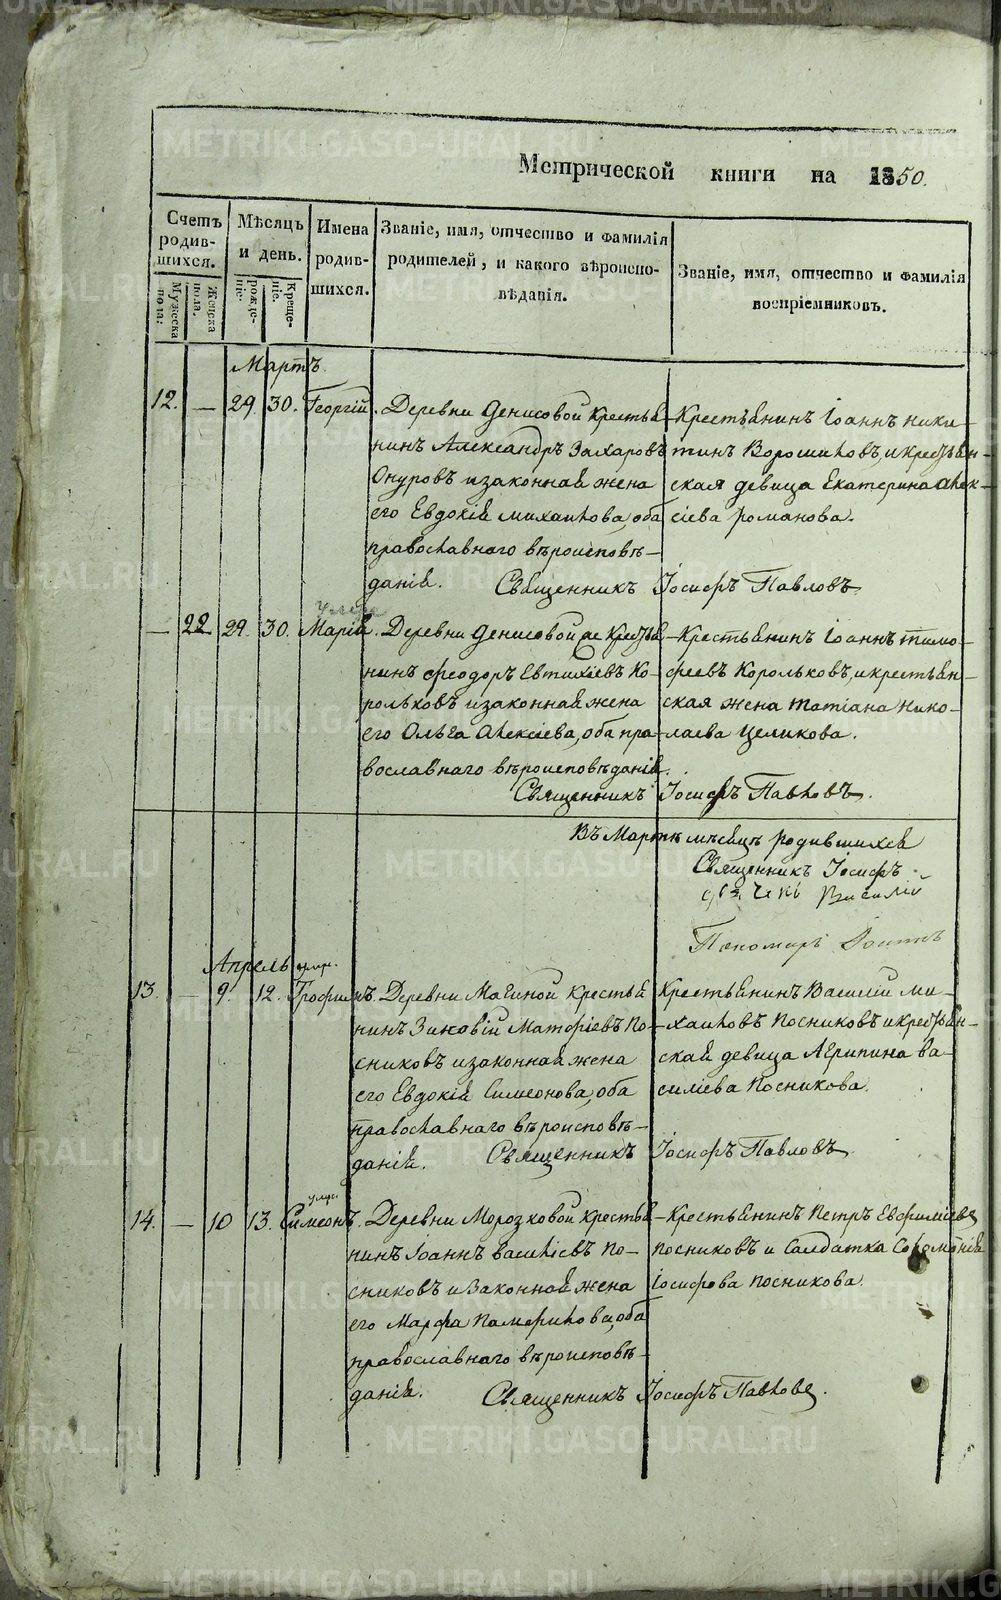 Метрической книги на 1850.
Счетъ родив-шихся.
Мужеска пола:
Женска пола.
Мѣсяцъ и день.
рожде-ніе.
Креще-ніе.
Имена родив-шихся.
Званіе, имя, отчество и фамилія родителей, и какого вѣроиспо-вѣданія.
Званіе, имя, отчество и фамилія воспріемниковъ.
Мартъ
12. — 29 30. Георгій. Деревни Денисовой крестья-
нинъ Александръ Захаровъ
Онуровъ и законная жена
его Евдокія Михаилова, оба
православнаго вѣроисповѣ-
данія.
Крестьянинъ Іоаннъ Ники-
тинъ Ворошиловъ, и крестьян-
ская девица Екатерина Алек-
сіева Романова.
Священникъ Іосифъ Павловъ
умерла
— 22 29. 30. Марія. Деревни Денисовой крестья-
нинъ Феодоръ Евтихіевъ Ко-
рольковъ и законная жена
его Ольга Алексіева, оба пра-
вославнаго вѣроисповѣданія.
Крестьянинъ Іоаннъ Тимо-
феевъ Корольковъ, и крестьян-
ская жена Татіана Нико-
лаева Целикова.
Священникъ Іосифъ Павловъ.
Въ Мартѣ мѣсяцѣ родившихся
Священникъ Іосифъ
Василій
Пономарь
Апрель
умр.
13. — 9. 12. Трофимъ. Деревни Мачиной крестья
нинъ Зиновій Матфіевъ По-
сниковъ и законная жена
его Евдокія Симеонова, оба
православнаго вѣроисповѣ-
данія.
Крестьянинъ Василій Ми-
хаиловъ Посниковъ и крестьян-
ская девица Агрипина Ва-
силіева Посникова.
Священникъ Іосифъ Павловъ.
умр.
14. — 10 13. Симеонъ. Деревни Морозковой крестья-
нинъ Іоаннъ Василіевъ По-
сниковъ и законная жена
его Марфа Памфилова, оба
православнаго вѣроисповѣ-
данія.
Крестьянинъ Петръ Евфиміевъ
Посниковъ и Салдатка Соломонія
Іосифова Посникова.
Священникъ Іосифъ Павловъ.
METRIKI.GASO-URAL.RU